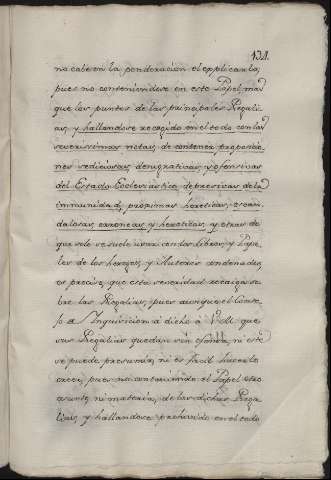 no cabe en la ponderacion el explicarla;
pues no conteniendose en este Papel, mas
que los puntos de las principales Regali-
as, y hallandose recogido en el todo con las
severissimas notas, de contener proposicio-
nes sediciosas, denigrativas, y ofensivas
del Estado Ecclesiastico, depresivas de la
immunidad, proximas hereticas, escan-
dalosas, erroneas, y hereticas, y otras de
que solo se suele usar con los libros, y Pape-
les de los hereges, y Autores condenados,
es preciso, que esta severidad recaiga so-
bre las Regalias; pues aunque el Conse-
jo de Inquisicion à dicho à V.M. que
sus Regalias quedan sin ofensa, ni este
se puede presumir, ni es facil hacerlo
creer, pues no conteniendo el Papel otro
asunto, ni materia, de las dichas Rega-
lias, y hallandose prohivido en el todo